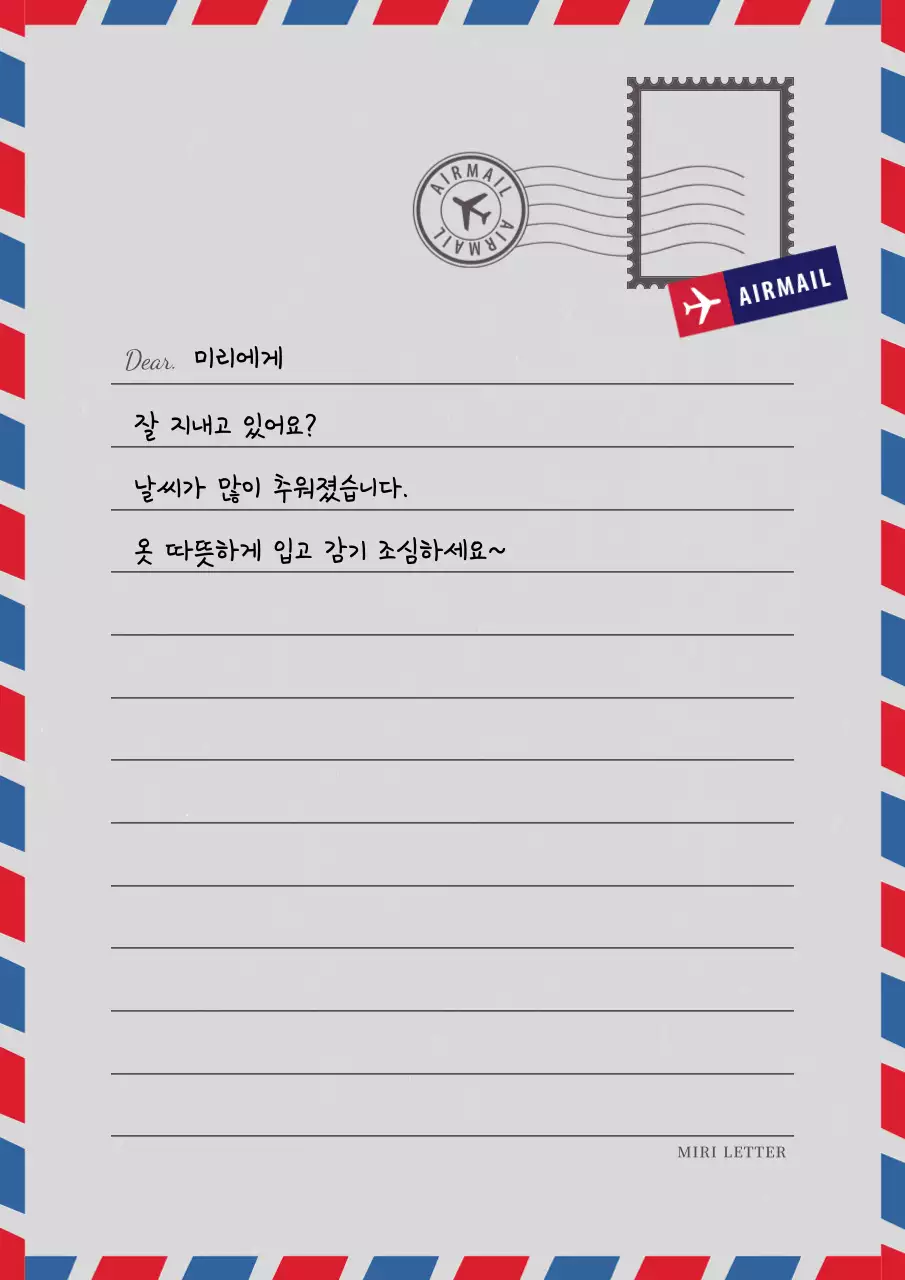 AIRMAIL AIRMAIL
AIRMAIL
Dear. 미리에게
잘 지내고 있어요?
날씨가 많이 추워졌습니다.
옷 따뜻하게 입고 감기 조심하세요~
MIRI LETTER